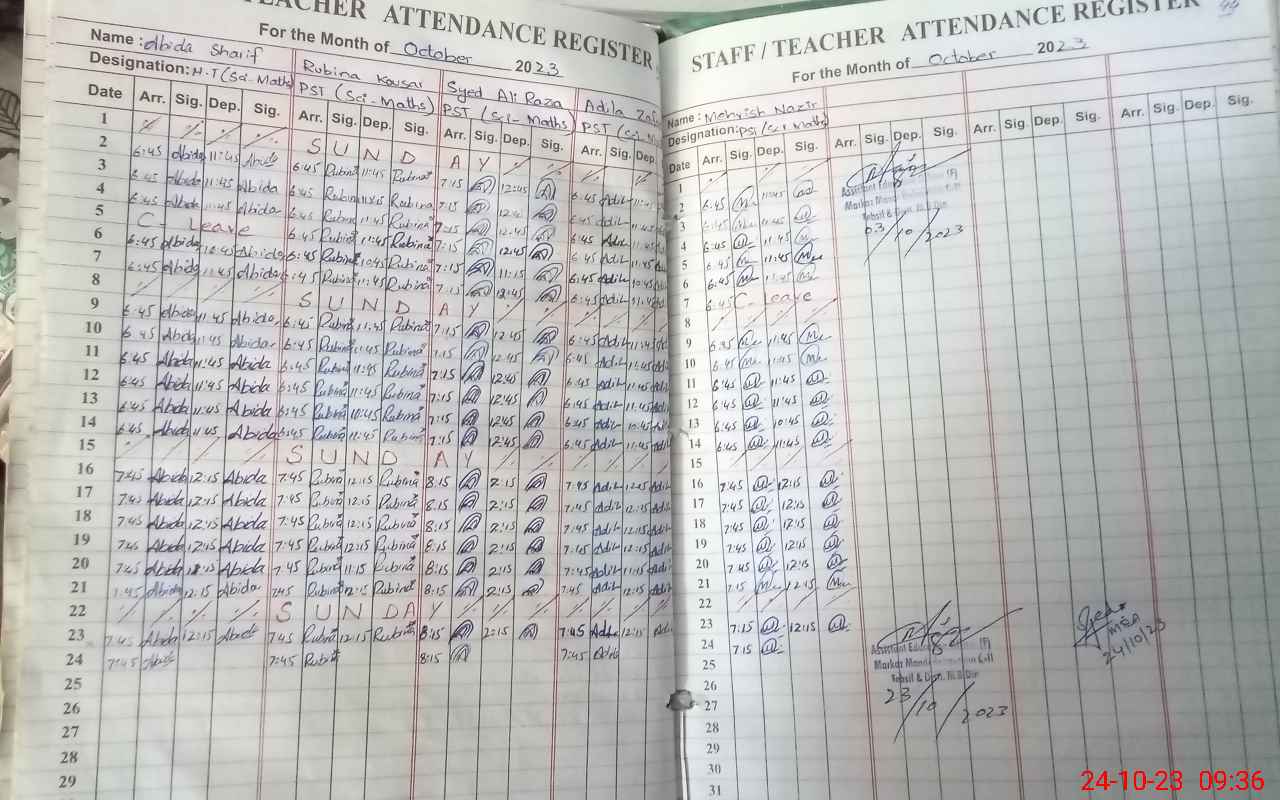 TEACHER ATTENDANCE REGISTER
For the Month of October 2023
Name : Abida Sharif Rubina Kousar Syed Ali Raza Adila
Designation: H.T (Sci-Maths) PST (Sci-Maths) PST (Sci-Maths) PST (Sci-M
Date Arr. Sig. Dep. Sig. Arr. Sig. Dep. Sig. Arr. Sig. Dep. Sig. Arr. Sig. Dep.
1 SUNDAY
2 6:45 Abida 11:45 Abida 6:45 Rubina 11:45 Rubina 7:15 12:45 6:45 Adil 11:4
3 6:45 Abida 11:45 Abida 6:45 Rubina 11:45 Rubina 7:15 12:45 6:45 Adil 11:45
4 6:45 Abida 11:45 Abida 6:45 Rubina 11:45 Rubina 7:15 12:45 6:45 Adil 11:45
5 C - Leave 6:45 Rubina 11:45 Rubina 7:15 12:45 6:45 Adil 11:45
6 6:45 Abida 10:45 Abida 6:45 Rubina 10:45 Rubina 7:15 11:15 6:45 Adil 10:45
7 6:45 Abida 11:45 Abida 6:45 Rubina 11:45 Rubina 7:15 12:45 6:45 Adil 11:45
8 SUNDAY
9 6:45 Abida 11:45 Abida 6:45 Rubina 11:45 Rubina 7:15 12:45 6:45 Adil 11:45
10 6:45 Abida 11:45 Abida 6:45 Rubina 11:45 Rubina 7:15 12:45 6:45 Adil 11:45
11 6:45 Abida 11:45 Abida 6:45 Rubina 11:45 Rubina 7:15 12:45 6:45 Adil 11:45
12 6:45 Abida 11:45 Abida 6:45 Rubina 11:45 Rubina 7:15 12:45 6:45 Adil 11:45
13 6:45 Abida 11:45 Abida 6:45 Rubina 10:45 Rubina 7:15 12:45 6:45 Adil 10:45
14 6:45 Abida 11:45 Abida 6:45 Rubina 11:45 Rubina 7:15 12:45 6:45 Adil 11:45
15 SUNDAY
16 7:45 Abida 12:15 Abida 7:45 Rubina 12:15 Rubina 8:15 2:15 7:45 Adil 12:15 Adil
17 7:45 Abida 12:15 Abida 7:45 Rubina 12:15 Rubina 8:15 2:15 7:45 Adil 12:15 Adil
18 7:45 Abida 12:15 Abida 7:45 Rubina 12:15 Rubina 8:15 2:15 7:45 Adil 12:15 Adil
19 7:45 Abida 12:15 Abida 7:45 Rubina 12:15 Rubina 8:15 2:15 7:45 Adil 12:15 Adil
20 7:45 Abida Abida 7:45 Rubina 11:15 Rubina 8:15 2:15 7:45 Adil 11:15 Adil
21 7:45 Abida 12:15 Abida 7:45 Rubina 12:15 Rubina 8:15 2:15 7:45 Adil 12:15 Adil
22 SUNDAY
23 7:45 Abida 12:15 Abida 7:45 Rubina 12:15 Rubina 8:15 2:15 7:45 Adil 12:15 Adil
24 7:45 Abida 7:45 Rubina 8:15 7:45 Adila
25
26
27
28
29
STAFF / TEACHER ATTENDANCE REGISTER
For the Month of October 2023
Name : Mehvish Nazir
Designation: PST (Sci Maths)
Date Arr. Sig. Dep. Sig. Arr. Sig. Dep. Sig. Arr. Sig. Dep. Sig. Arr. Sig. Dep. Sig.
1
2 6:45 11:45
3 6:45 11:45
4 6:45 11:45
5 6:45 11:45
6 6:45 11:45
7 6:45 C - Leave
8
9 6:45 11:45
10 6:45 11:45
11 6:45 11:45
12 6:45 11:45
13 6:45 10:45
14 6:45 11:45
15
16 7:45 12:15
17 7:45 12:15
18 7:45 12:15
19 7:45 12:15
20 7:45 12:15
21 7:15 12:15
22
23 7:15 12:15
24 7:15
25
26
27
28
29
30
31
Assistant (F)
Markaz
Tehsil & Distt. M.B.Din
03/10/2023
Assistant (F)
Markaz
Tehsil & Distt. M.B.Din
23/10/2023
MEA
24/10/23
24-10-23 09:36